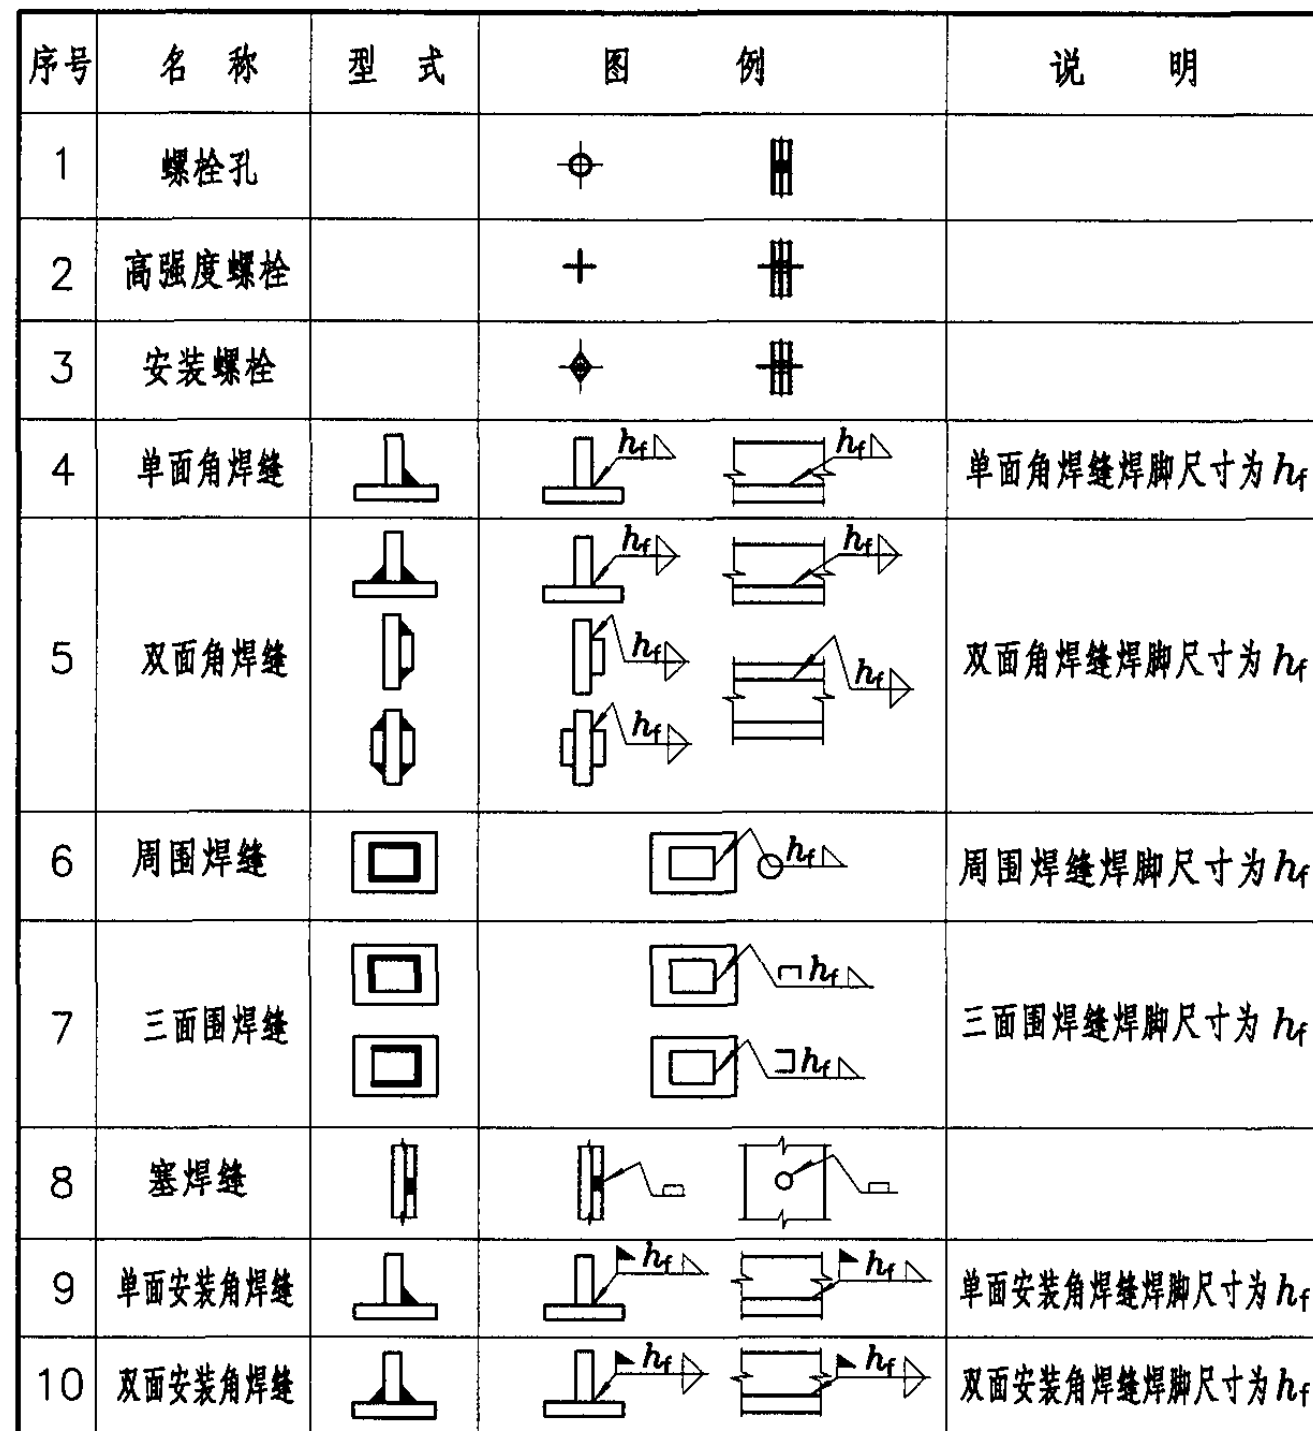 序号 名称 型式 图例 说明
1 螺栓孔
2 高强度螺栓
3 安装螺栓
4 单面角焊缝 hf hf 单面角焊缝焊脚尺寸为hf
hf hf
5 双面角焊缝 hf hf 双面角焊缝焊脚尺寸为hf
hf
6 周围焊缝 hf 周围焊缝焊脚尺寸为hf
hf
7 三面围焊缝 三面围焊缝焊脚尺寸为hf
hf
8 塞焊缝
9 单面安装角焊缝 hf hf 单面安装角焊缝焊脚尺寸为hf
10 双面安装角焊缝 hf hf 双面安装角焊缝焊脚尺寸为hf